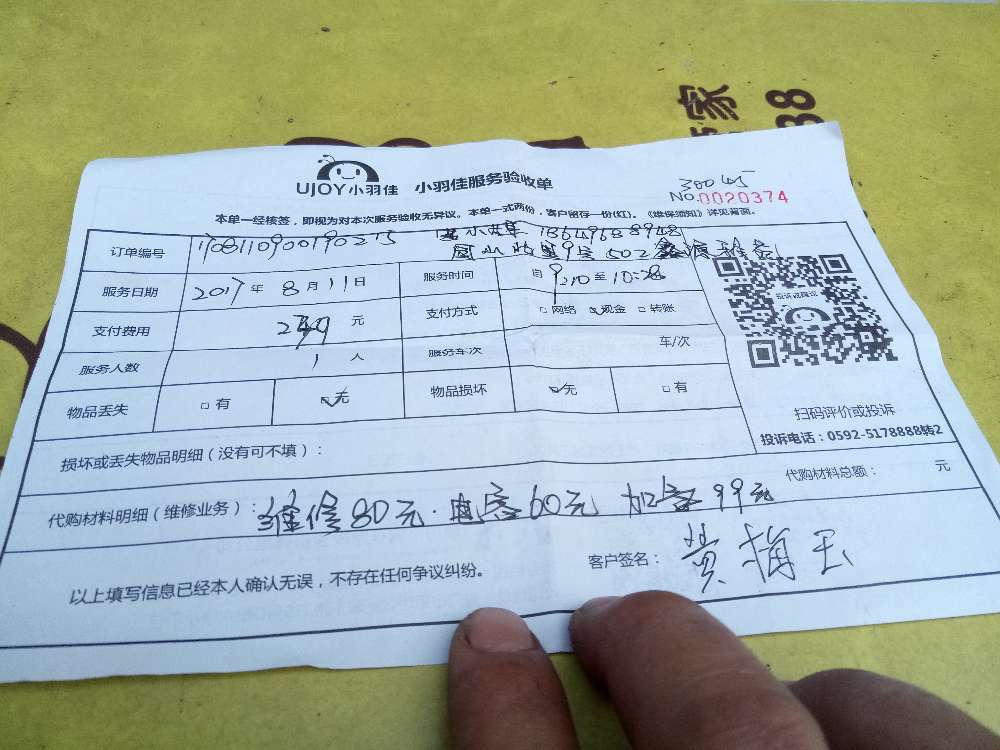 家
88
UJOY小羽佳 小羽佳服务验收单
No.0020374
本单一经核签，即视为对本次服务验收无异议。本单一式两份，客户留存一份(红)。《维保须知》详见背面。
订单编号 1708110900190275 18649688948
502
服务日期 2017年8月11日 服务时间 自9:10至10:28
支付费用 元 支付方式 □网络 ☑现金 □转账
服务人数 1人 服务车次 车/次
物品丢失 □有 ☑无 物品损坏 ☑无 □有
扫码评价或投诉
投诉电话：0592-5178888转2
损坏或丢失物品明细（没有可不填）：
代购材料总额： 元
代购材料明细（维修业务）：维修80元·电容60元 加 99元
以上填写信息已经本人确认无误，不存在任何争议纠纷。
客户签名：黄梅玉